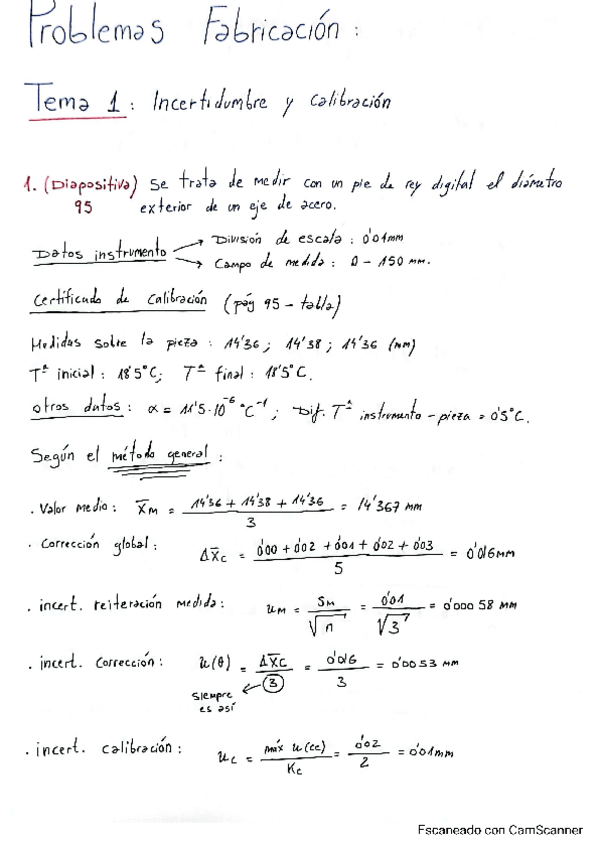 Problemas Fabricación:
Tema 1: Incertidumbre y calibración
1. (Diapositiva) Se trata de medir con un pie de rey digital el diámetro
95 exterior de un eje de acero.
Datos instrumento → División de escala: 0'01mm
→ Campo de medida: 0 - 150 mm.
Certificado de calibración (pág 95 - tabla)
Medidas sobre la pieza: 14'36; 14'38; 14'36 (mm)
Tª inicial: 18'5°C; Tª final: 18'5°C.
otros datos: α = 11'5·10⁻⁶ °C⁻¹; Dif. Tª instrumento - pieza = 0'5°C.
Según el método general:
. Valor medio: X̄M = (14'36 + 14'38 + 14'36) / 3 = 14'367 mm
. Corrección global: ΔX̄c = (0'00 + 0'02 + 0'01 + 0'02 + 0'03) / 5 = 0'016mm
. incert. reiteración medida: uM = SM / √n = 0'01 / √3 = 0'000 58 mm
. incert. corrección: u(θ) = ΔX̄c / 3 = 0'016 / 3 = 0'0053 mm
siempre
es así
. incert. calibración: uc = máx u(cc) / Kc = 0'02 / 2 = 0'01mm
Escaneado con CamScanner